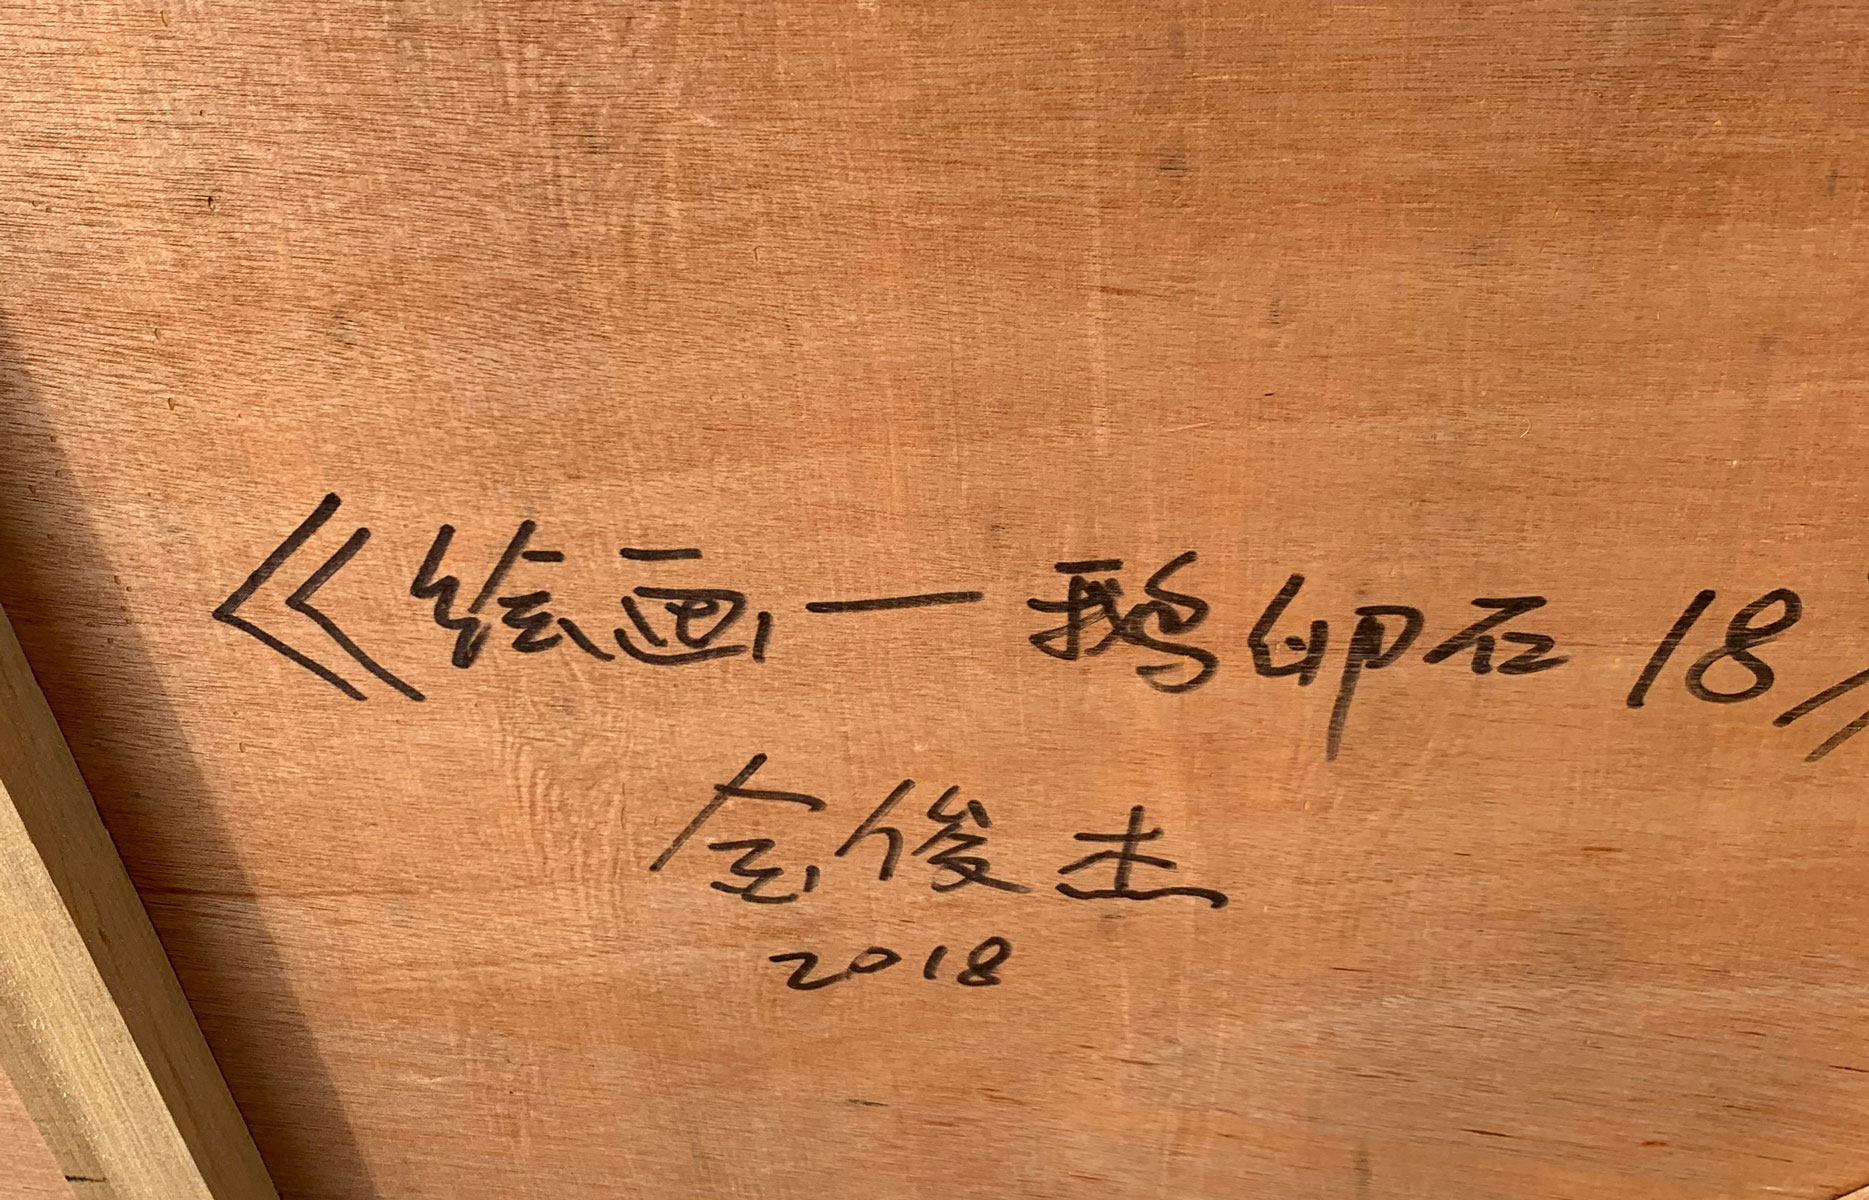 《绘画一鹅卵石 18》
金俊杰
2018